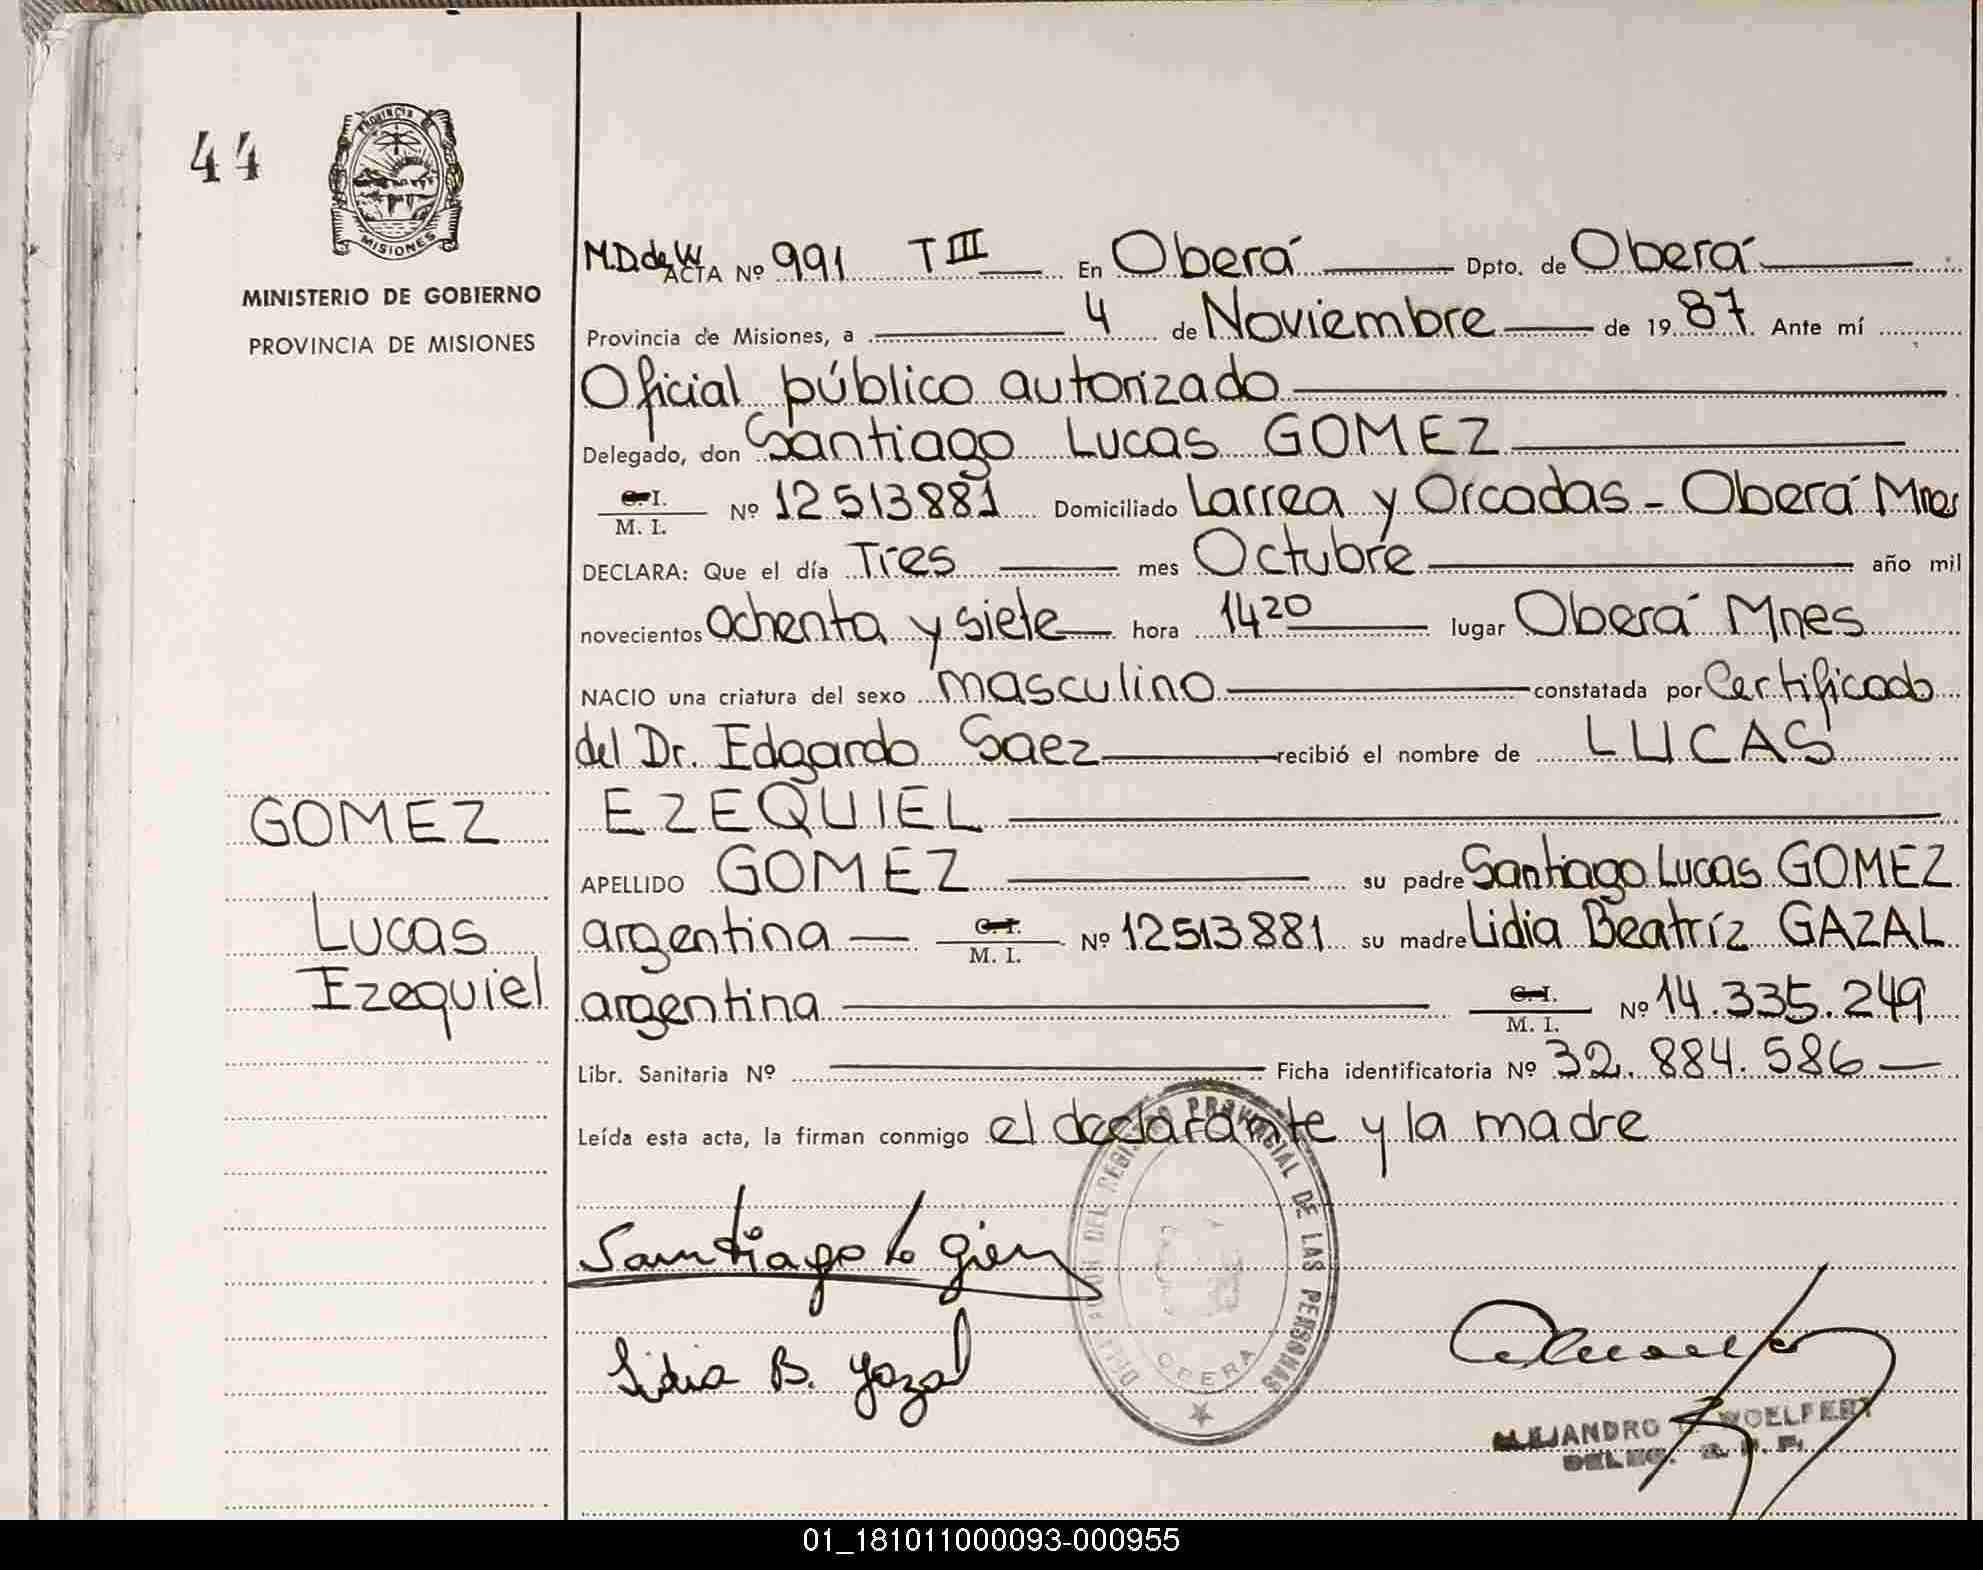 44
PROVINCIA DE
MISIONES
MINISTERIO DE GOBIERNO
PROVINCIA DE MISIONES
M.D.deW ACTA Nº 991 T III En Oberá Dpto. de Oberá
Provincia de Misiones, a 4 de Noviembre de 1987. Ante mí
Oficial público autorizado
Delegado, don Santiago Lucas GOMEZ
C.I. M. I. Nº 12513881 Domiciliado Larrea y Orcadas - Oberá Mnes
DECLARA: Que el día Tres mes Octubre año mil
novecientos ochenta y siete hora 14 20 lugar Oberá Mnes
NACIO una criatura del sexo masculino constatada por Certificado
del Dr. Edgardo Saez recibió el nombre de LUCAS
EZEQUIEL
APELLIDO GOMEZ su padre Santiago Lucas GOMEZ
argentina C.I. M. I. Nº 12513881 su madre Lidia Beatríz GAZAL
argentina C.I. M. I. Nº 14.335.249
Libr. Sanitaria Nº Ficha identificatoria Nº 32.884.586
Leída esta acta, la firman conmigo el declarante y la madre
GOMEZ
Lucas
Ezequiel
Santiago L.
Lidia B. Gazal
DELEGACION DEL REGISTRO PROVINCIAL DE LAS PERSONAS
OBERA
ALEJANDRO WOELFERT
DELEG. R. P. P.
01_181011000093-000955